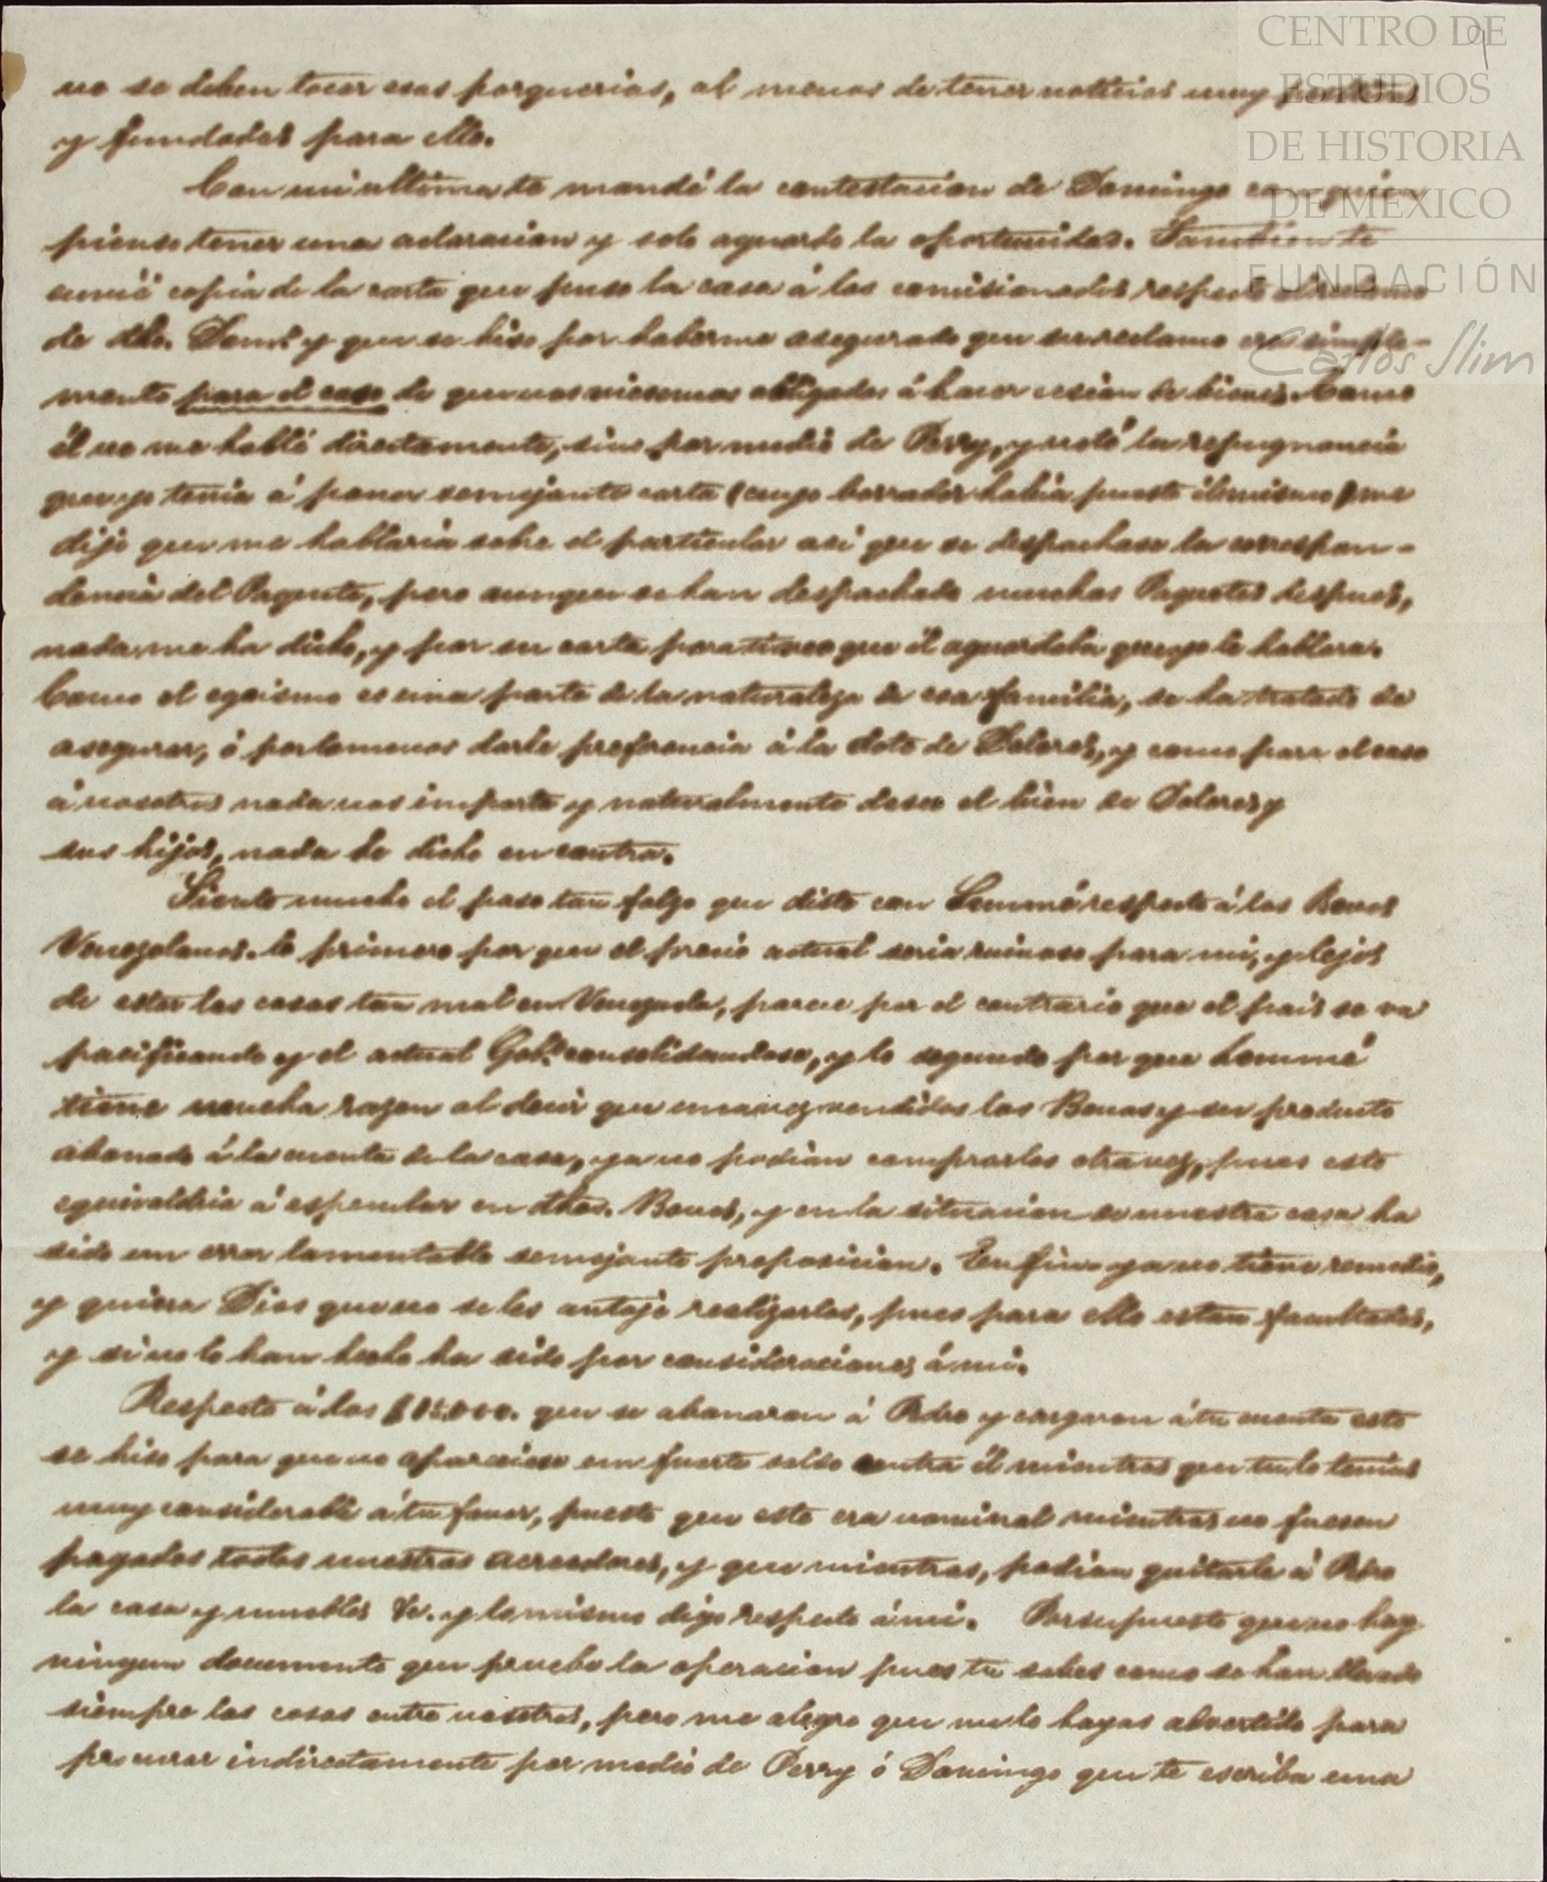 no se deben tocar esas porquerias, al menos de tener noticias muy
y fundadas para ello.
Con mi ultima te mandé la contestacion de Domingo con quien
pienso tener una aclaracion y solo aguardo la oportunidad. Tambien te
envié copia de la carta que puso la casa á los comisionados respecto al reclamo
de dho. Domo. y que se hiso por haberme asegurado que su reclamo era simple-
mente para el caso de que nos viesemos obligados á hacer cesion de bienes. Como
él no me habló directamente, sino por medio de Perry, y notó la repugnancia
que yo tenia á poner semejante carta (cuyo borrador habia puesto él mismo) me
dijo que me hablaria sobre el particular asi que se despachase la correspon-
dencia del Paquete, pero aunque se han despachado muchos Paquetes despues,
nada me ha dicho, y por su carta para ti veo que él aguardaba que yo le hablara.
Como el egoismo es una parte de la naturaleza de esa familia, se ha tratado de
asegurar, ó por lo menos darle preferencia á la dote de Dolores, y como para el caso
á nosotros nada nos importa y naturalmente deseo el bien de Dolores y
sus hijos, nada he dicho en contra.
Siento mucho el paso tan falzo que diste con Lemmé respecto á los Bonos
Venezolanos. lo primero por que el precio actual seria ruinoso para mi, y lejos
de estar las cosas tan mal en Venezuela, parece por el contrario que el pais se va
pacificando y el actual Gobo. consolidandose, y lo segundo por que Lemmé
tiene mucha razon al decir que una vez vendidos los Bonos y su producto
abonado á la cuenta de la casa, ya no podian comprarlos otra vez, pues esto
equivaldria á especular en dhos. Bonos, y en la situacion de nuestra casa ha
sido un error lamentable semejante proposicion. En fin ya no tiene remedio,
y quiera Dios que no se les antoje realizarlos, pues para ello estan facultados,
y si no lo han hecho ha sido por consideraciones á mi.
Respecto á los que se abonaron á Pedro y cargaron á tu cuenta esto
se hiso para que no apareciese un fuerte saldo contra él mientras que tu lo tenias
muy considerable á tu favor, puesto que este era nominal mientras no fuesen
pagados todos nuestros acreedores, y que mientras, podian quitarle á Pedro
la casa y muebles &c. y lo mismo digo respecto á mi. Por supuesto que no hay
ningun documento que pruebe la operacion pues tu sabes como se han llevado
siempre las cosas entre nosotros, pero me alegro que me lo hayas advertido para
procurar indirectamente por medio de Perry ó Domingo que te escriba una
CENTRO DE
ESTUDIOS
DE HISTORIA
DE MÉXICO
FUNDACIÓN
Carlos Slim